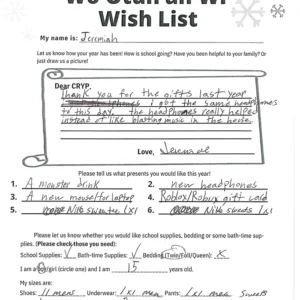 Wish List
My name is: Jeremiah
Let us know how your year has been! How is school going? Have you been helpful to your family? Or
just draw us a picture!
Dear CRYP,
Thank you for the gifts last year
I got the same headphones
to this day. the headphones really helped
instead of like blasting music in the house.
Love, Jeremiah
Please tell us what presents you would like this year!
1. A monster drink
2. new headphones
3. A new mouse for laptop
4. Roblox/Robux gift card
5. Nike sweater 1x
6. Nike sweats 1x
Please let us know whether you would like school supplies, bedding or some bath-time sup-
plies. (Please check those you need):
School Supplies: V Bath-time Supplies: V Bedding (Twin/Full/Queen): X
I am a boy/girl (circle one) and I am 15 years old.
My sizes are:
Shoes: 11 mens Underwear: 1x mens Pants: 1x mens sweats